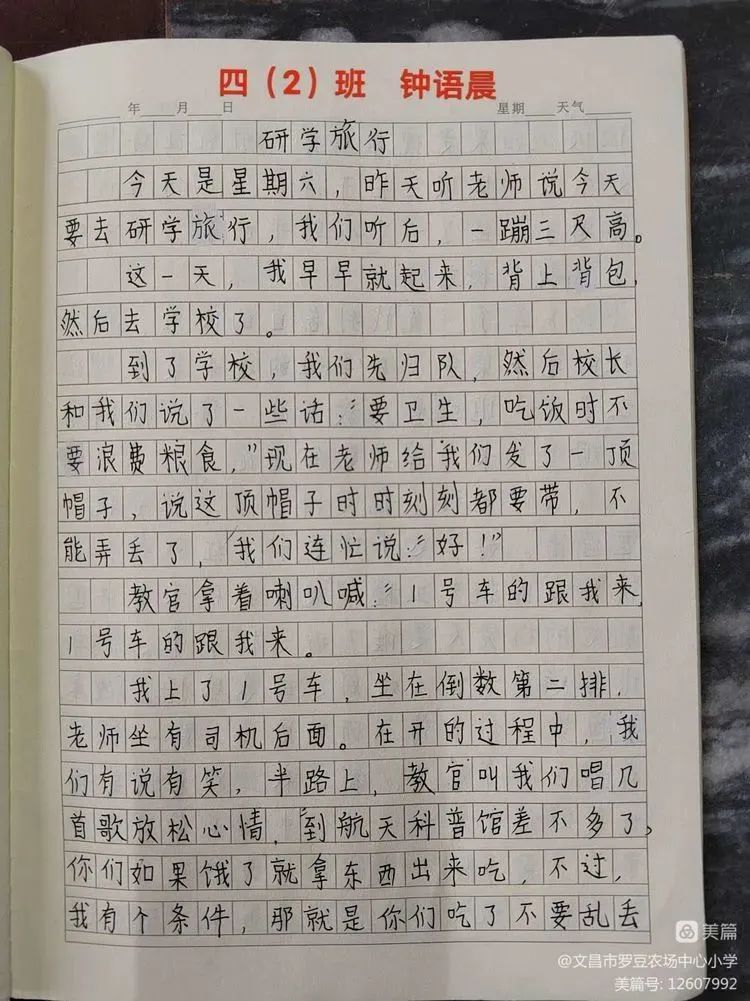 四（2）班 钟语晨
年 月 日 星期 天气
研学旅行
今天是星期六，昨天听老师说今天
要去研学旅行，我们听后，一蹦三尺高。
这一天，我早早就起来，背上背包，
然后去学校了。
到了学校，我们先归队，然后校长
和我们说了一些话：“要卫生，吃饭时不
要浪费粮食，”现在老师给我们发了一顶
帽子，说这顶帽子时时刻刻都要带，不
能弄丢了，我们连忙说：“好！”
教官拿着喇叭喊：“1号车的跟我来，
1号车的跟我来。
我上了1号车，坐在倒数第二排，
老师坐有司机后面。在开的过程中，我
们有说有笑，半路上，教官叫我们唱几
首歌放松心情，到航天科普馆差不多了。
你们如果饿了就拿东西出来吃，不过，
我有个条件，那就是你们吃了不要乱丢
美篇
@文昌市罗豆农场中心小学
美篇号: 12607992